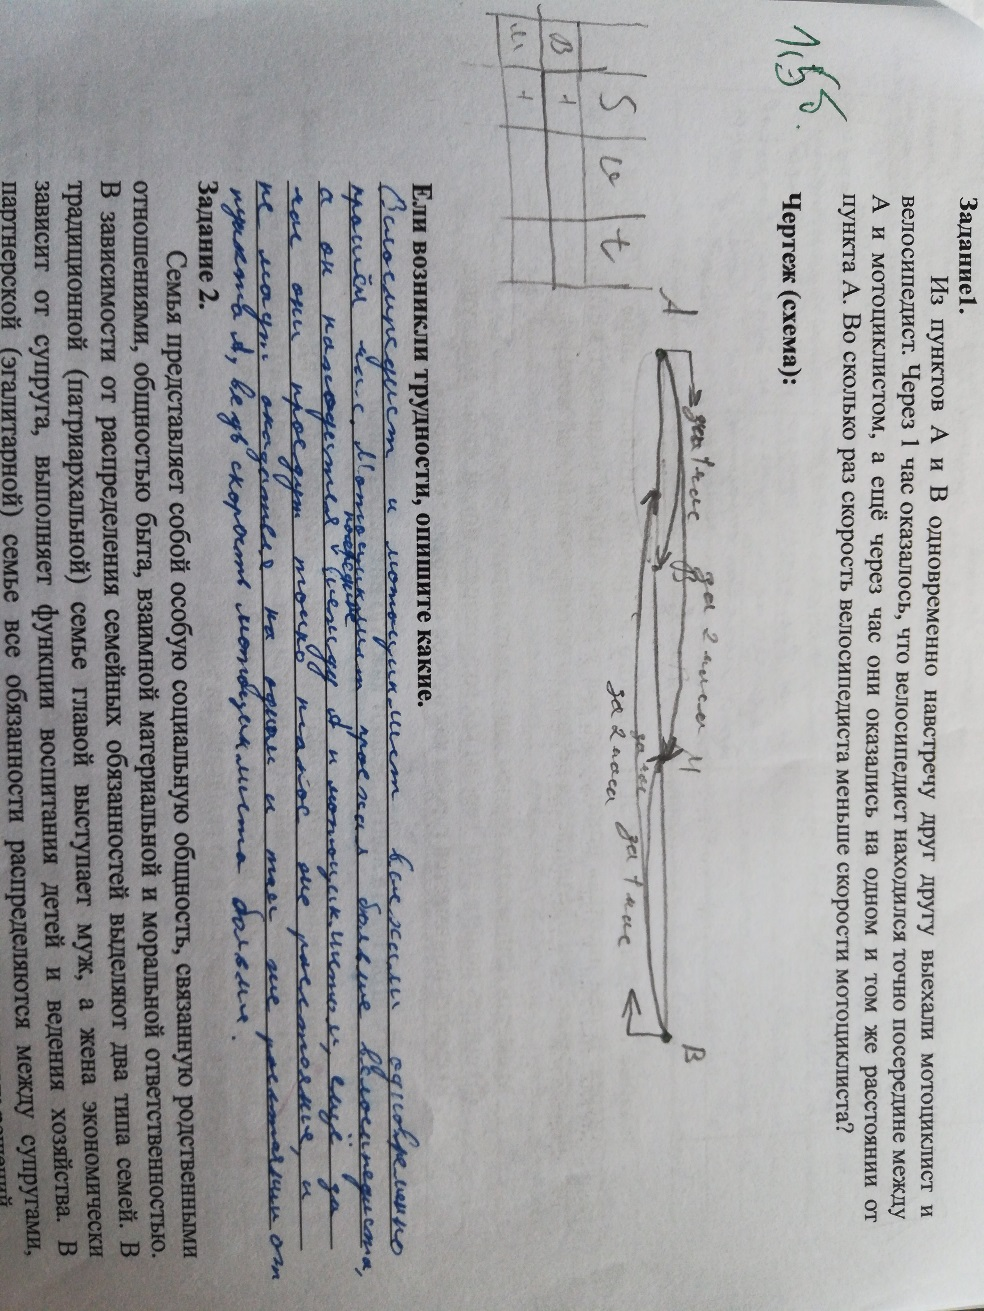 Задание1.
Из пунктов А и В одновременно навстречу друг другу выехали мотоциклист и
велосипедист. Через 1 час оказалось, что велосипедист находился точно посередине между
А и мотоциклистом, а ещё через час они оказались на одном и том же расстоянии от
пункта А. Во сколько раз скорость велосипедиста меньше скорости мотоциклиста?
1,5б.
Чертеж (схема):
А
за 1 час
за 2 часа
М
В
за 1 час
за 2 часа
S v t
В +
М +
Ели возникли трудности, опишите какие.
Велосипедист и мотоциклист выехали одновременно
прошёл час, Мотоциклист проехал больше велосипедиста,
а он находится посередине между А и мотоциклистом, ещё за
час они проедут только такое же расстояние, и
не могут оказаться на одном и том же расстоянии от
пункта А, ведь скорость мотоциклиста больше.
Задание 2.
Семья представляет собой особую социальную общность, связанную родственными
отношениями, общностью быта, взаимной материальной и моральной ответственностью.
В зависимости от распределения семейных обязанностей выделяют два типа семей. В
традиционной (патриархальной) семье главой выступает муж, а жена экономически
зависит от супруга, выполняет функции воспитания детей и ведения хозяйства. В
партнерской (эгалитарной) семье все обязанности распределяются между супругами,